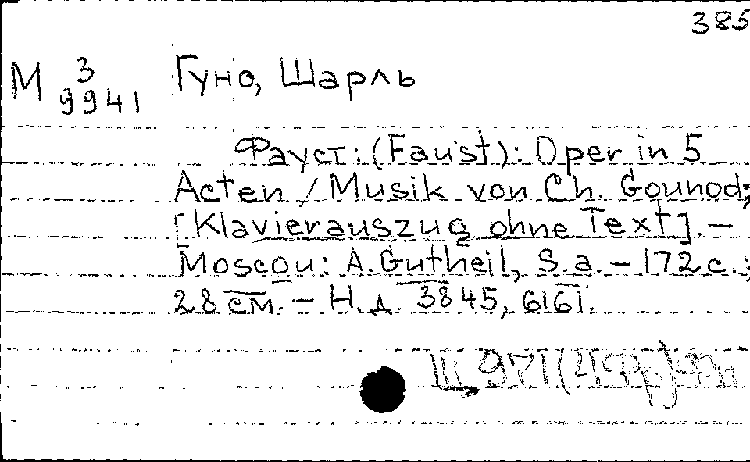 385
М 3 Гуно, Шарль
9941
Фауст: (Faust): Oper in 5
Acten / Musik von Ch. Gounod;
[Klavierauszug ohne Text]. –
Moscou: A. Gutheil, S.a. – 172 с.;
28 см. – Н.д. 3845, 6161.
Щ 971(4Фр)